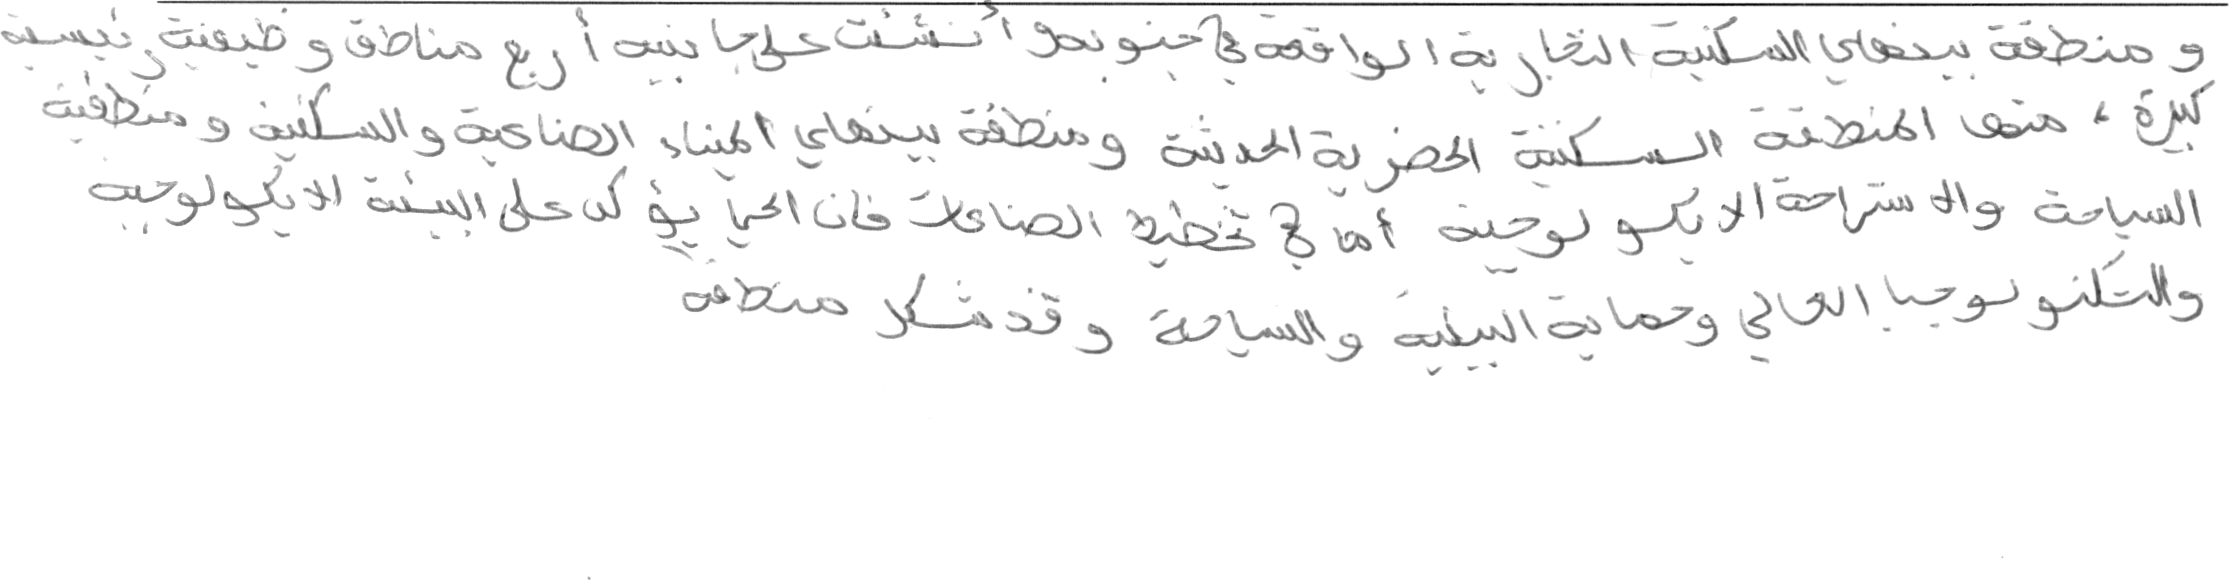 ومنطقة بينهاي السكنية التجارية الواقعة في جنوبه وأنشئت على جانبيه أربع مناطق وظيفية رئيسية
كبيرة، منها المنطقة السكنية الحضرية الحديثة ومنطقة بينهاي الميناء الصناعية والسكنية ومنطقة
السياحة والاستراحة الايكولوجية أما في تخطيط الصناعات فان الحي يؤكد على البيئة الايكولوجية
والتكنولوجيا العالي وحماية البيئية والسياحة وقد شكل منطقة